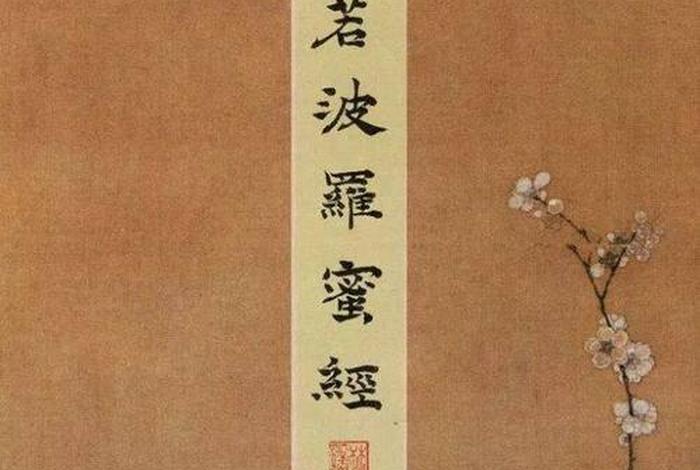 若波羅蜜經